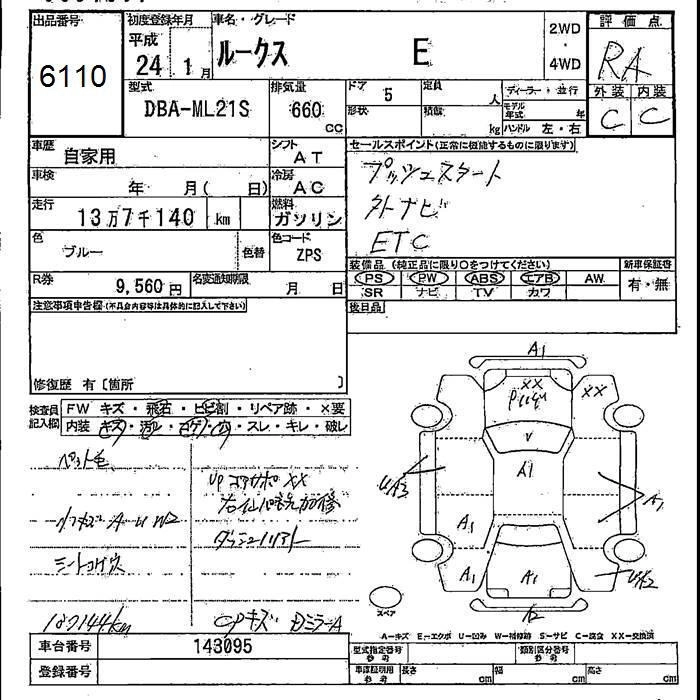 出品番号
6110
初度登録年月
平成
24 1月
車名・グレード
ルークス E
2WD
・
4WD
評価点
RA
外装 内装
C C
型式
DBA-ML21S
排気量
660
cc
ドア
5
形状
定員
人
積載
kg
ディーラー・並行
モデル年式 年
ハンドル 左・右
車歴
自家用
シフト
AT
車検
年 月( 日)
冷房
AC
走行
13万7千140 km
燃料
ガソリン
色
ブルー
色替
色コード
ZPS
R券
9,560円
名変通知期限
月 日
セールスポイント(正常に機能するものに限ります)
プッシュスタート
外ナビ
ETC
装備品 (純正品に限り○をつけてください)
新車保証書
PS PW ABS エアB AW
SR ナビ TV カワ
有・無
後日品
注意事項申告欄(不具合内容等は具体的に記入して下さい)
修復歴 有〔箇所 〕
検査員記入欄
FW キズ・飛石・ヒビ割・リペア跡・×要
内装 キズ・汚レ・コゲ・穴・スレ・キレ・破レ
ペット毛
シートコゲ穴
137144km
ダッシュ
CPキズ DミラーA
A1
XX
XX
V
A1
UA3
A1
A1
A1
A1
スペア
A－キズ E－エクボ U－凹み W－補修跡 S－サビ C－腐食 XX－交換済
車台番号
143095
登録番号
型式指定番号 参考
類別区分番号 参考
車庫証明用 参考
長さ cm
幅 cm
高さ cm